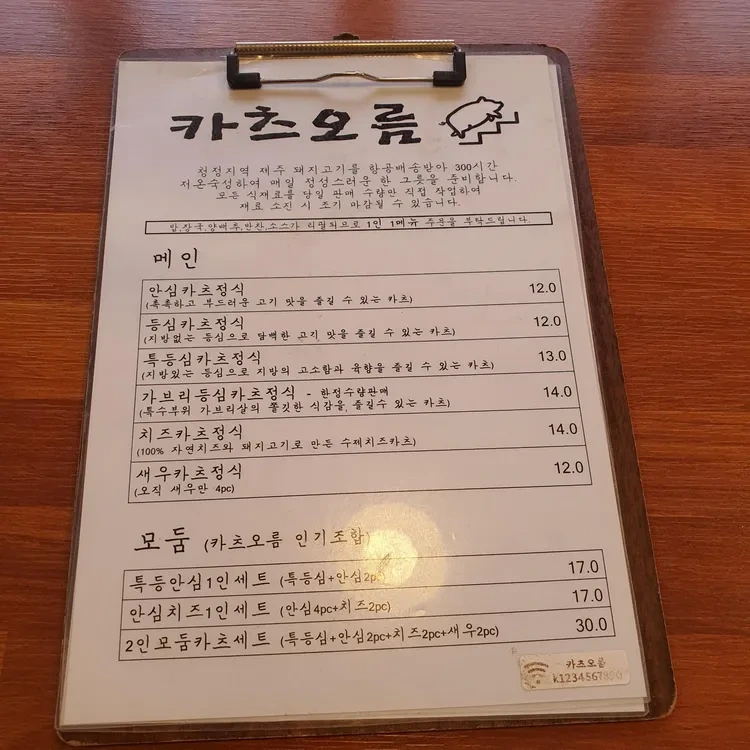 카츠오름
청정지역 제주 돼지고기를 항공배송받아 300시간
저온숙성하여 매일 정성스러운 한 그릇을 준비합니다.
모든 식재료를 당일 판매 수량만 직접 작업하여
재료 소진 시 조기 마감될 수 있습니다.
밥,장국,양배추,반찬,소스가 리필되므로 1인 1메뉴 주문을 부탁드립니다.
메인
안심카츠정식 12.0
(촉촉하고 부드러운 고기 맛을 즐길 수 있는 카츠)
등심카츠정식 12.0
(지방없는 등심으로 담백한 고기 맛을 즐길 수 있는 카츠)
특등심카츠정식 13.0
(지방있는 등심으로 지방의 고소함과 육향을 즐길 수 있는 카츠)
가브리등심카츠정식 - 한정수량판매 14.0
(특수부위 가브리살의 쫄깃한 식감을 즐길수 있는 카츠)
치즈카츠정식 14.0
(100% 자연치즈와 돼지고기로 만든 수제치즈카츠)
새우카츠정식 12.0
(오직 새우만 4pc)
모둠 (카츠오름 인기조합)
특등안심1인세트 (특등심+안심2pc) 17.0
안심치즈1인세트 (안심4pc+치즈2pc) 17.0
2인모둠카츠세트 (특등심+안심2pc+치즈2pc+새우2pc) 30.0
카츠오름
k1234567890